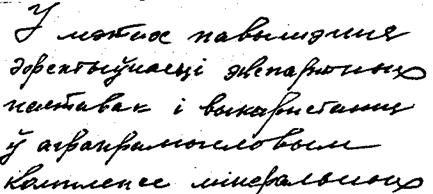 У мэтах павышэння
эфектыўнасці экспартных
паставак і выкарыстання
ў аграпрамысловым
комплексе мінеральных